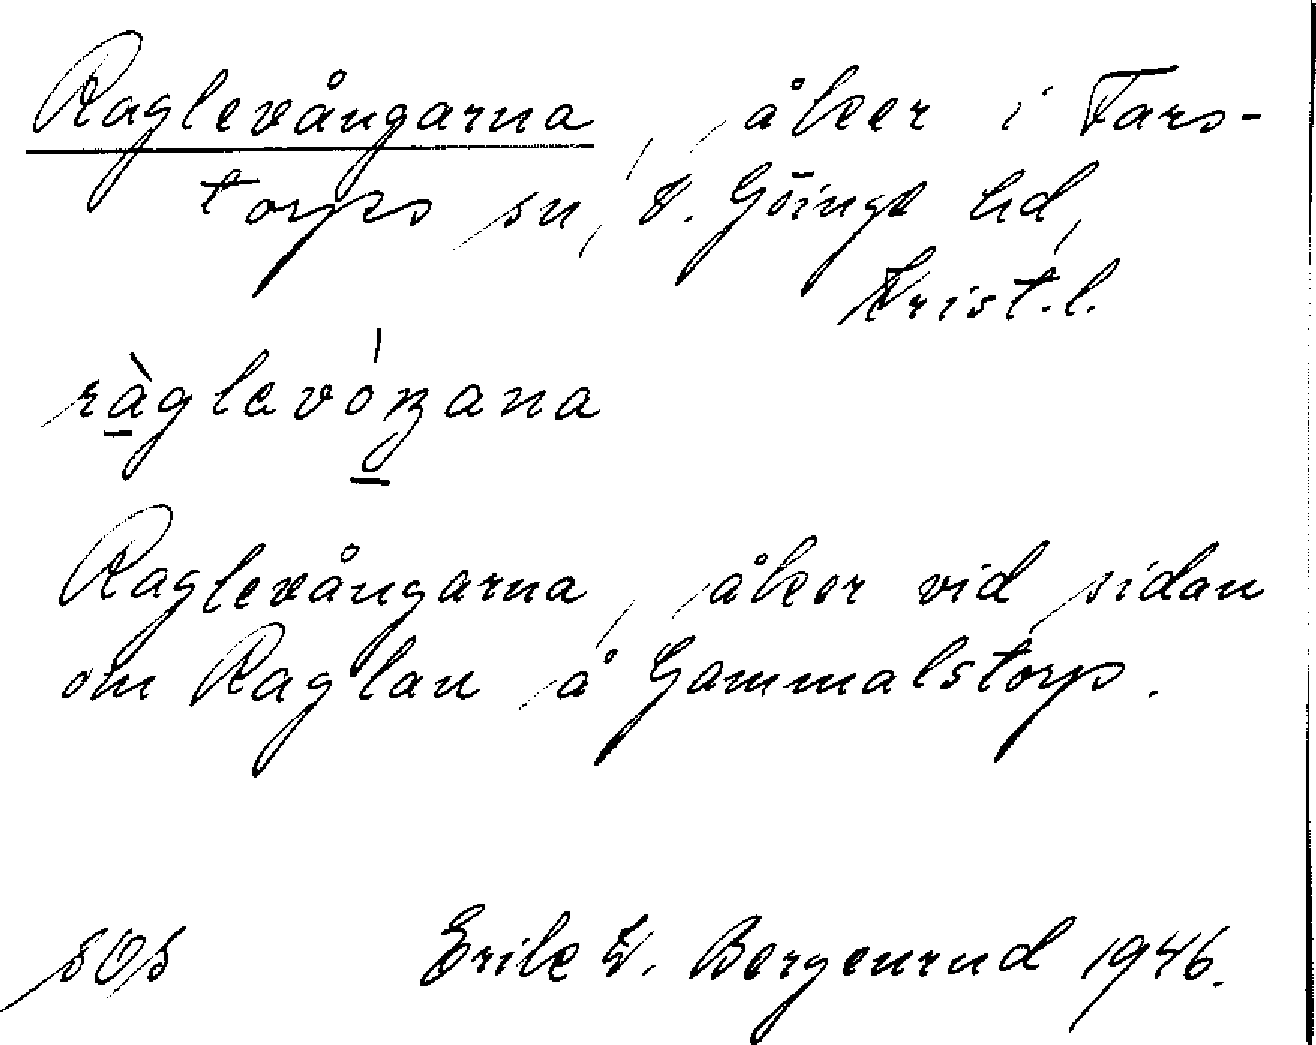 Raglevångarna, åker i Fars-
torps sn, V. Göinge hd,
Krist.l.
ràglevóŋana
Raglevångarna, åker vid sidan
om Raglan å Gammalstorp.
Erik W. Bergenrud 1946.